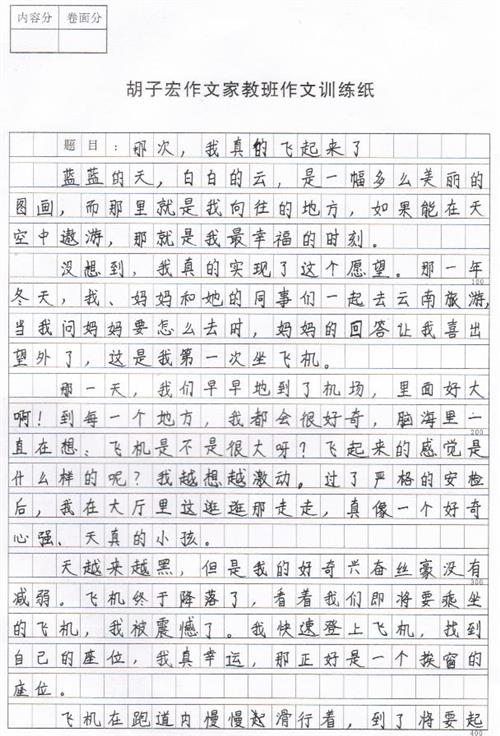 内容分 卷面分
胡子宏作文家教班作文训练纸
题目:那次，我真的飞起来了
蓝蓝的天，白白的云，是一幅多么美丽的
图画，而那里就是我向往的地方，如果能在天
空中遨游，那就是我最幸福的时刻。
没想到，我真的实现了这个愿望。那一年
100
冬天，我、妈妈和她的同事们一起去云南旅游，
当我问妈妈要怎么去时，妈妈的回答让我喜出
望外了，这是我第一次坐飞机。
那一天，我们早早地到了机场，里面好大
啊！到每一个地方，我都会很好奇，脑海里一
200
直在想：飞机是不是很大呀？飞起来的感觉是
什么样的呢？我越想越激动。过了严格的安检
后，我在大厅里这逛逛那走走，真像一个好奇
心强、天真的小孩。
天越来越黑，但是我的好奇兴奋丝豪没有
300
减弱。飞机终于降落了，看着我们即将要乘坐
的飞机，我被震憾了。我快速登上飞机，找到
自己的座位，我真幸运，那正好是一个挨窗的
座位。
飞机在跑道内慢慢起滑行着，到了将要起
400